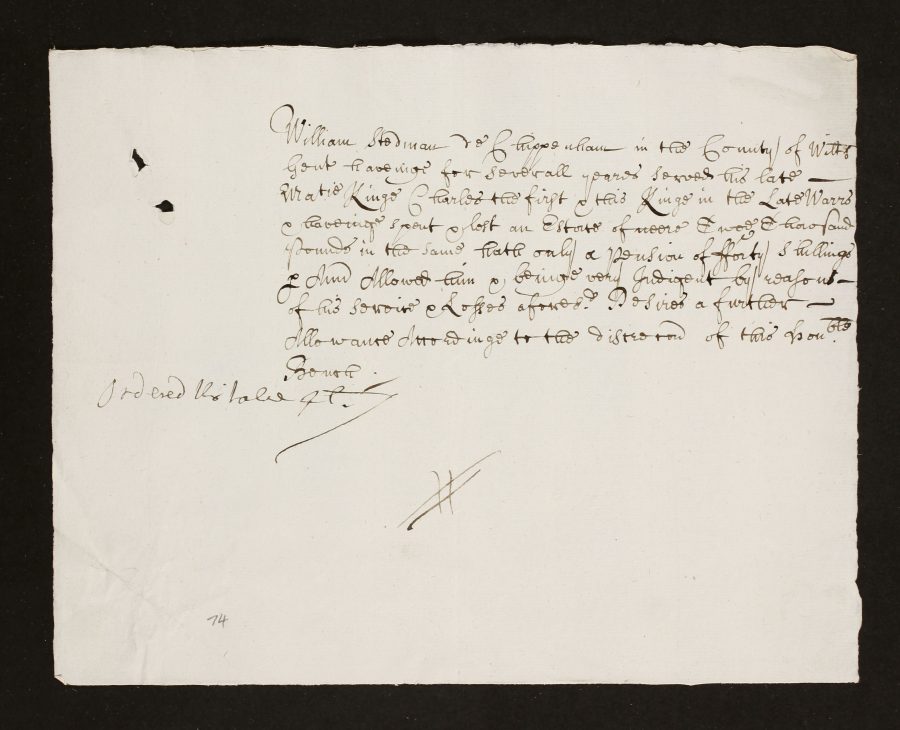 William Stedman de Chippenham in the County of Wilts
gent haveinge for severall yeares served his late
Matie Kinge Charles the first & this Kinge in the Late Warrs
& haveinge spent & lost an Estate of neere Twoe Thousand
Pounds in the same hath only a Pension of fforty Shillings
p Ann Allowed him & beinge very Indigent by reason
of his service & Losses aforesd. Desires a further
Allowance Accordinge to the discrecon of this Honble.
Bench.
Ordered his 4l.
74